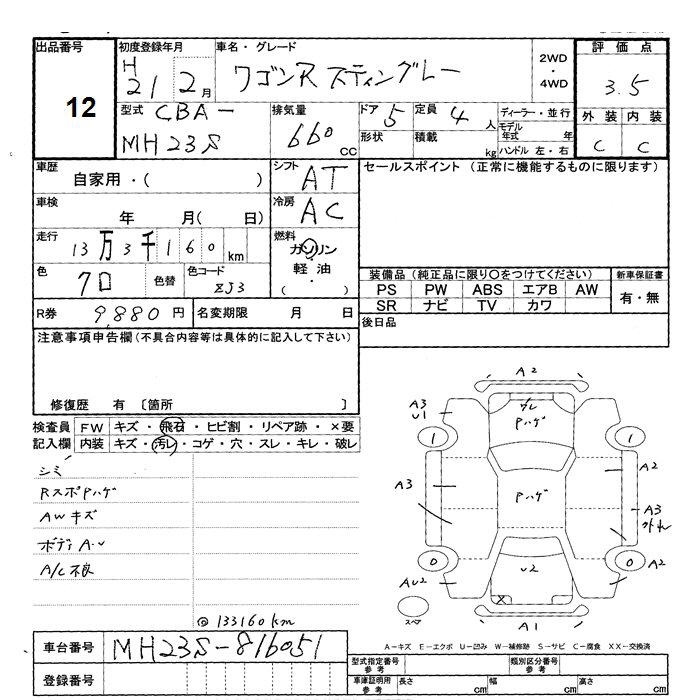 出品番号 初度登録年月 車名・グレード 2WD・4WD 評価点
12 H 21 2月 ワゴンR スティングレー 3.5
型式 CBA- 排気量 ドア 5 定員 4人 ディーラー・並行 外装 内装
MH23S 660 cc 形状 積載 kg モデル年式 年 ハンドル 左・右 C C
車歴 自家用・( ) シフト AT セールスポイント (正常に機能するものに限ります)
車検 年 月( 日) 冷房 AC
走行 13万3千160km 燃料 ガソリン・軽油・( )
色 クロ 色替 色コード ZJ3 装備品(純正品に限り○をつけてください) 新車保証書
PS PW ABS エアB AW 有・無
SR ナビ TV カワ
R券 9,880円 名変期限 月 日 後日品
注意事項申告欄(不具合内容等は具体的に記入して下さい)
修復歴 有 〔箇所 〕
検査員 FW キズ・飛石・ヒビ割・リペア跡・×要
記入欄 内装 キズ・汚レ・コゲ・穴・スレ・キレ・破レ
シミ
RスポPハゲ
AWキズ
ボディA・U
A/C不良
@133160km
A2
A3
U1
Pハゲ
1
1
A3
Pハゲ
A2
A3
外れ
0
0
AU2
U2
A2
X
A1
スペア
A-キズ E-エクボ U-凹み W-補修跡 S-サビ C-腐食 XX-交換済
車台番号 MH23S-816051
登録番号
型式指定番号 参考 類別区分番号 参考
車庫証明用 参考 長さ cm 幅 cm 高さ cm